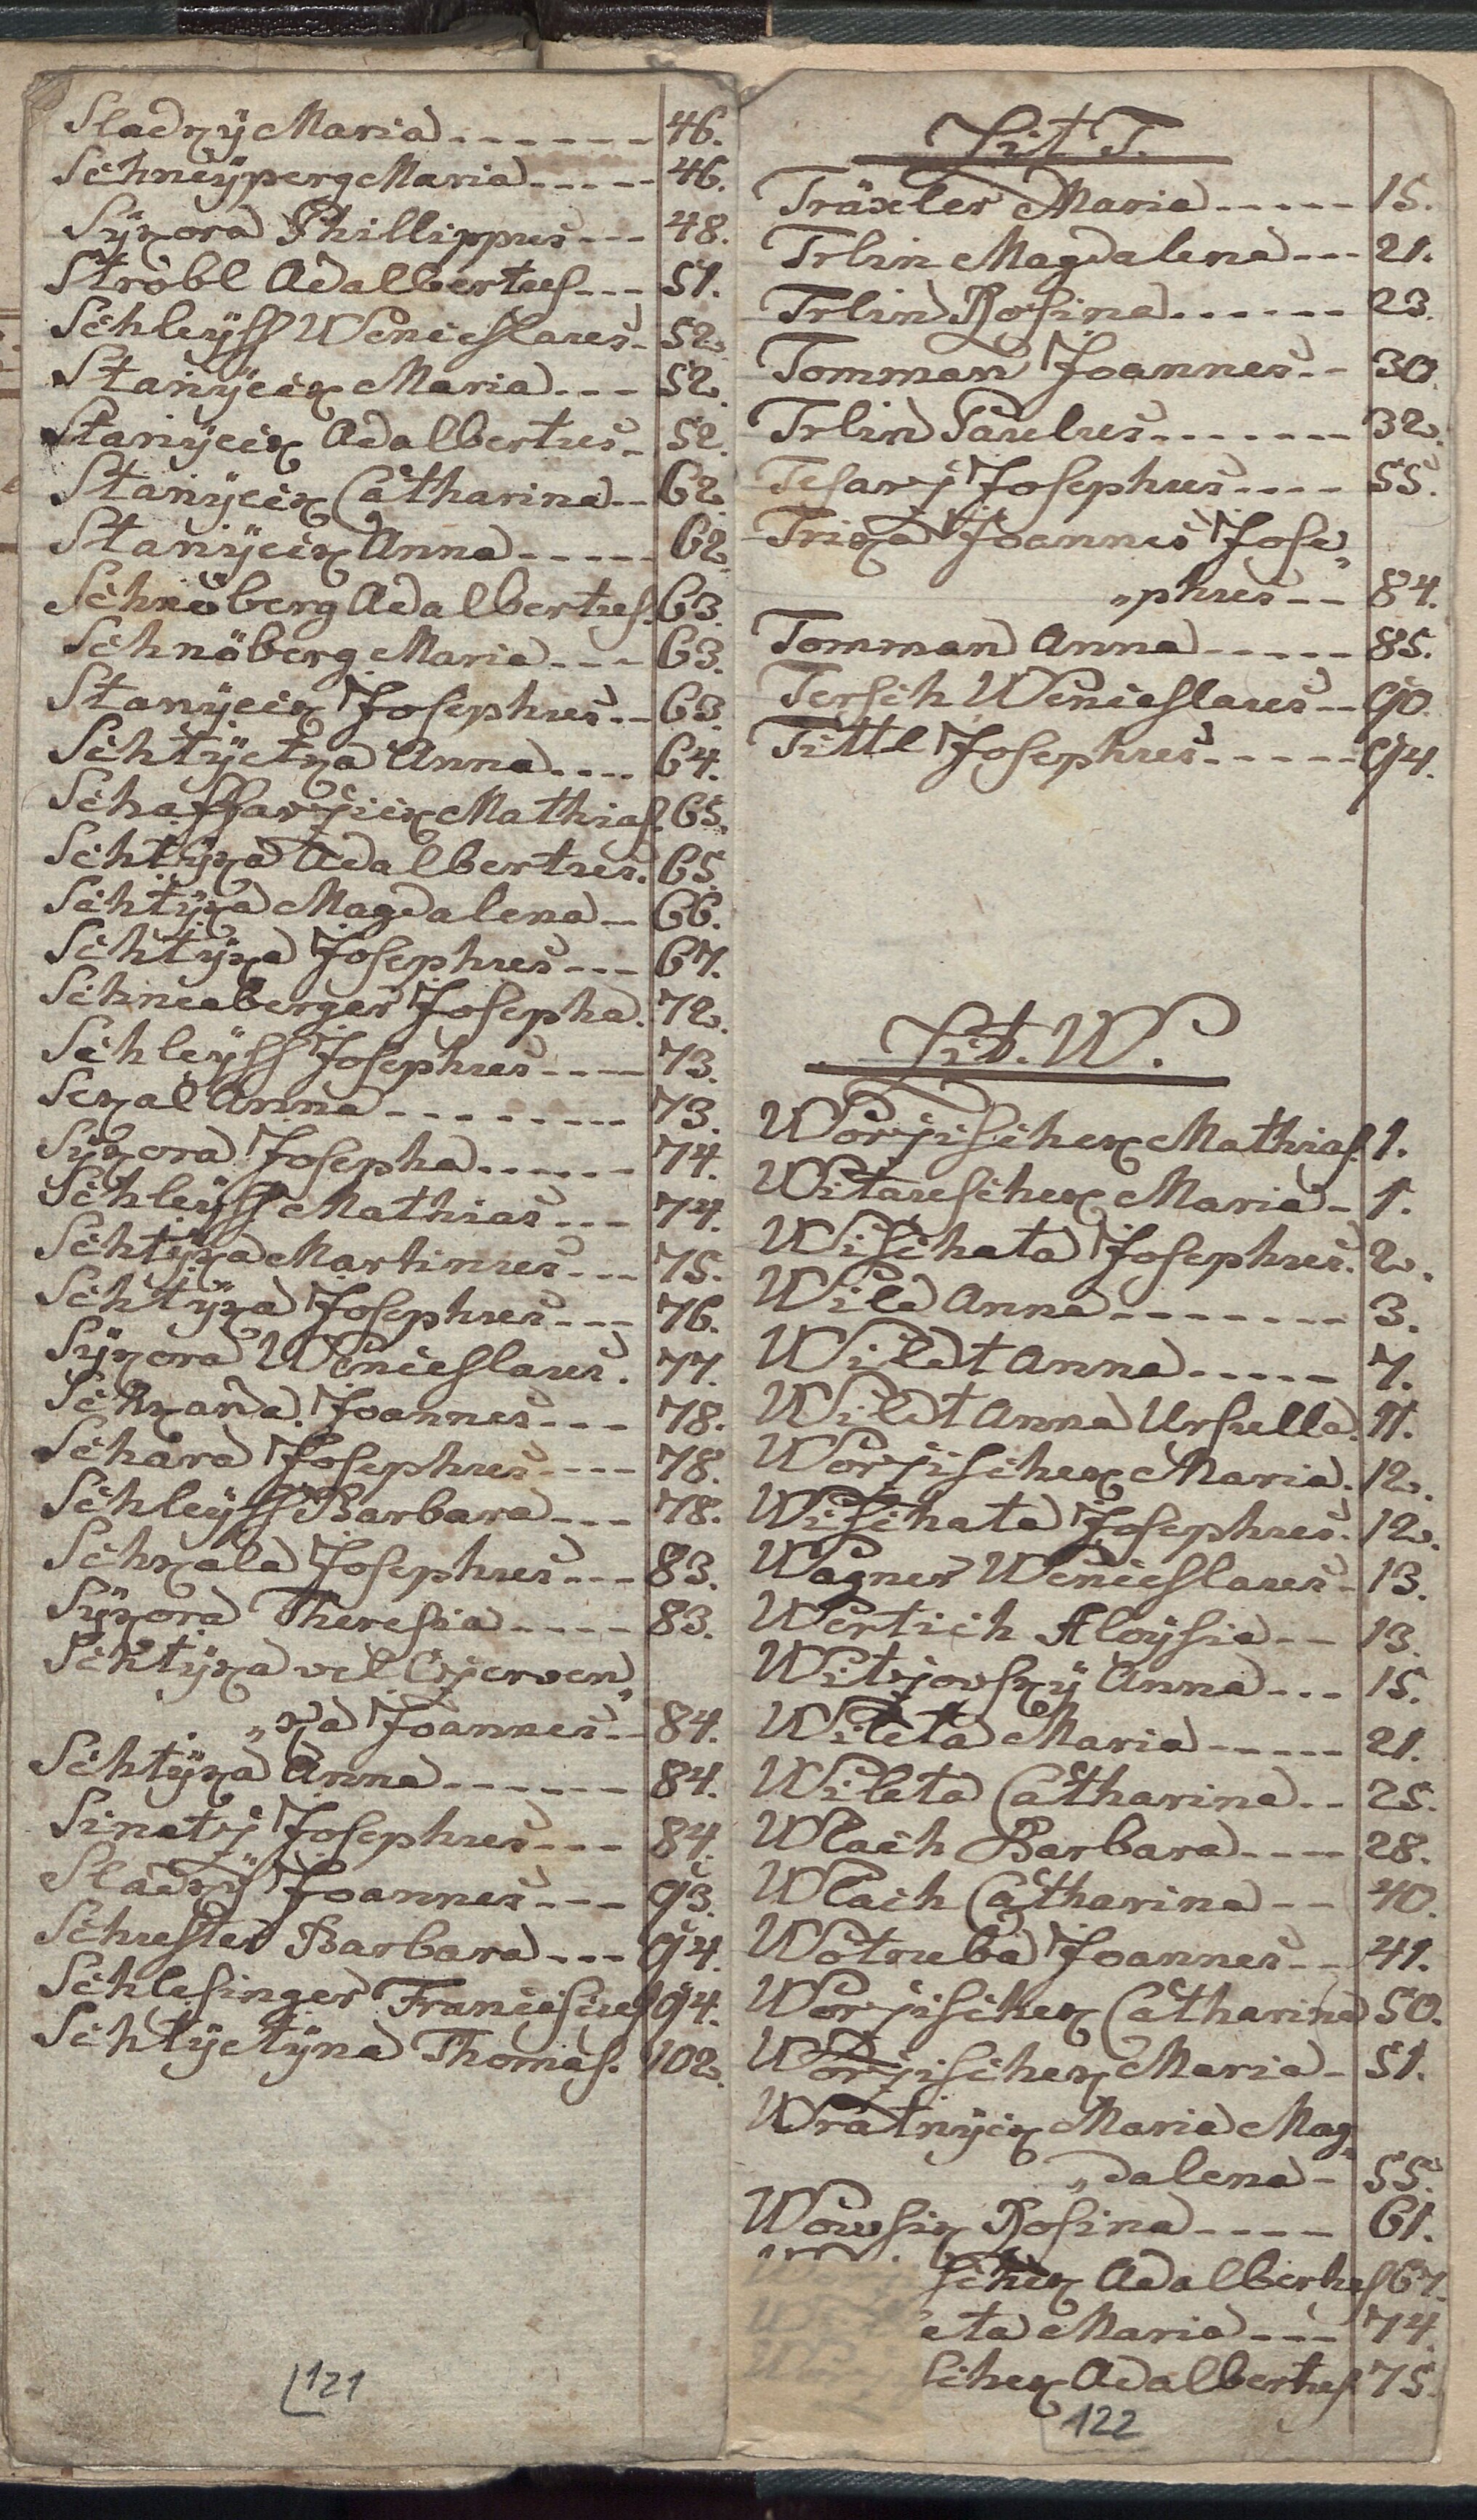 Sladky Maria ------ 46.
Schneÿperg Maria ----- 46.
Sÿkora Phillippus --- 48.
Ströbl Adalbertus --- 51.
Schleÿss Wenceslaus - 52.
Stanÿcik Maria --- 52.
Stanÿcik Adalbertus - 52.
Stanÿcik Catharina -- 62.
Stanÿcik Anna ----- 62.
Schnöberg Adalbertus. 63.
Schnöberg Maria --- 63.
Stanÿcik Josephus -- 63.
Schtÿctka Anna ---- 64.
Schaffarjick Mathias. 65.
Schtÿka Adalbertus. 65.
Schtÿka Magdalena - 66.
Schtÿka Josephus --- 67.
Schneeberger Josepha. 72.
Schleÿss Josephus ---- 73.
Skal Anna --------- 73.
Sÿkora Josepha ------ 74.
Schleÿss Mathias --- 74.
Schtÿka Martinus --- 75.
Schtÿka Josephus --- 76.
Sÿkora Wenceslaus. 77.
Joannes --- 78.
Schara Josephus ---- 78.
Schleÿss Barbara --- 78.
Schkala Josephus --- 83.
Sÿkora Theresia ---- 83.
Schtÿka vel Cžerven„
„ka Joannes - 84.
Schtÿka Anna ------ 84.
Josephus --- 84.
Sladkÿ Joannes --- 93.
Schuster Barbara --- 94.
Schlesinger Franciscus 94.
Schtÿctÿna Thomas. 102.
121
Lit T.
Träxler Maria ----- 15.
Trlin Magdalena --- 21.
Trlin Rosina ------ 23.
Tomman Joannes -- 30.
Trlin Paulus ------- 32.
Tesarj Josephus ---- 55.
Trixa Joannes Jose„
„phus -- 84.
Tomman Anna ----- 85.
Tersch Wenceslaus -- 90.
Tittl Josephus ----- 94.
Lit. W.
Worjischek Mathias. 1.
Witauschek Maria - 1.
Wischata Josephus. 2.
Wild Anna ------- 3.
Wildt Anna ----- 7.
Wildt Anna Ursulla. 11.
Worjischek Maria. 12.
Wischata Josephus. 12.
Wagner Wenceslaus - 13.
Wertich Aloÿsia -- 13.
Witjovskÿ Anna --- 15.
Wileta Maria ----- 21.
Wileta Catharina -- 25.
Wlach Barbara ---- 28.
Wlach Catharina -- 40.
Wotruba Joannes -- 41.
Worjischek Catharina 50.
Worjischek Maria - 51.
Wratnÿck Maria Mag„
„dalena - 55.
Wowsik Rosina ---- 61.
schek Adalbertus 67.
eta Maria --- 74.
schek Adalbertus 75.
122